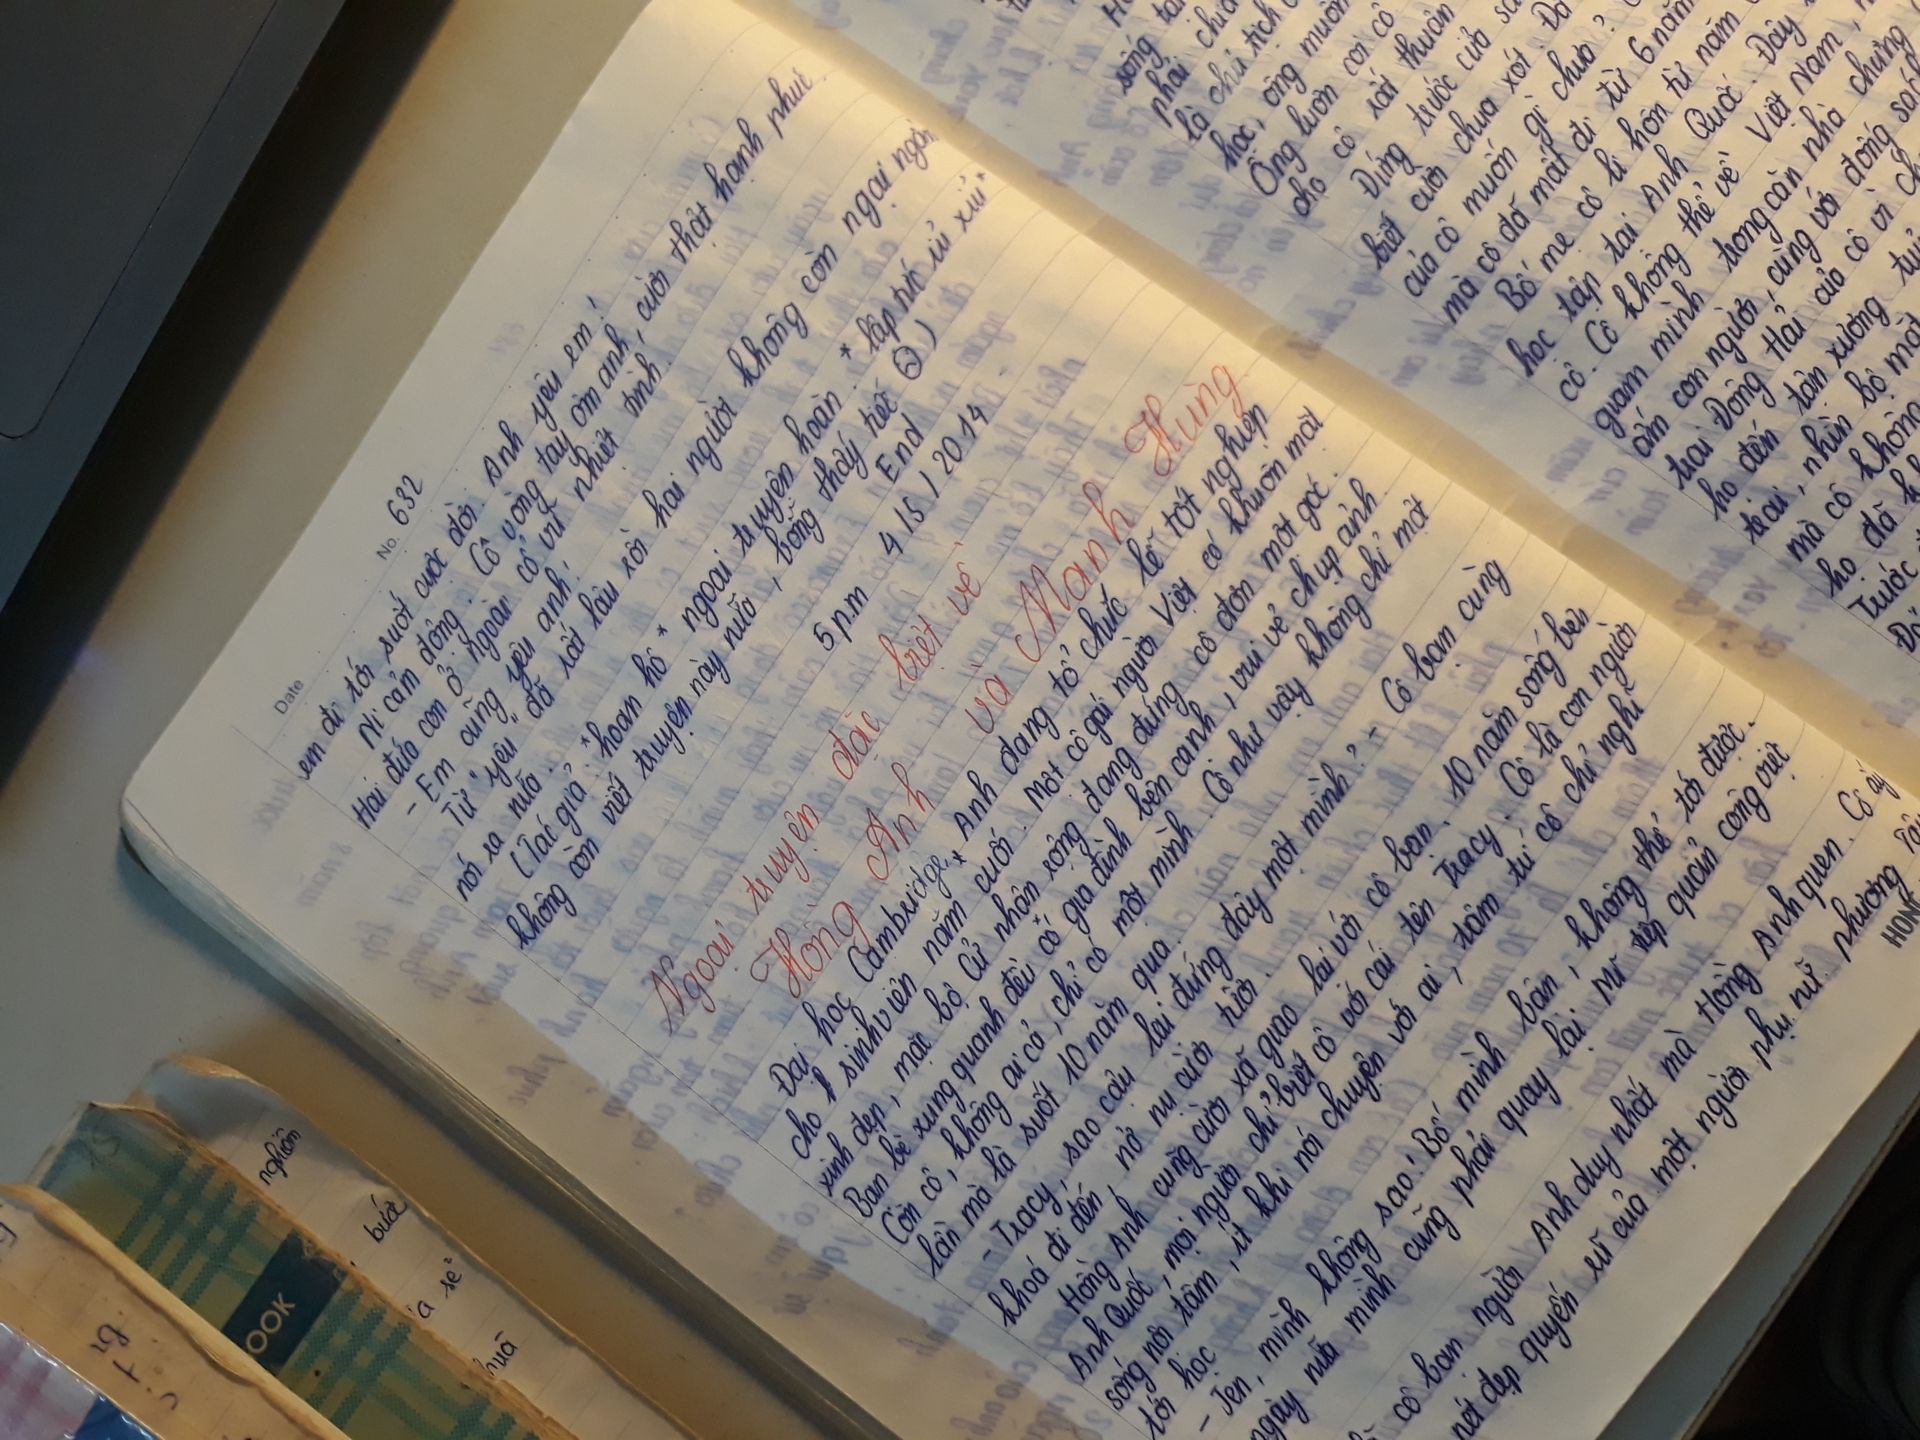 No. 632
Date
em đi tới suốt cuộc đời. Anh yêu em!
Ni cảm động. Cô vòng tay ôm anh, cười thật hạnh phúc
Hai đứa con ở ngoài cổ vũ nhiệt tình.
- Em cũng yêu anh!
Từ "yêu" đã rất lâu rồi hai người không còn ngại ngần
nói ra nữa.
(Tác giả: *hoan hô* ngoại truyện hoàn. *lập tức ỉu xìu*
không còn viết truyện này nữa, bỗng thấy tiếc)
End
5 p.m 4/5/2014
Ngoại truyện đặc biệt về
Hồng Anh và Mạnh Hùng
Đại học Cambridge, Anh đang tổ chức lễ tốt nghiệp
cho sinh viên năm cuối. Một cô gái người Việt có khuôn mặt
xinh đẹp, mặc bộ cử nhân rộng đang đứng cô đơn một góc.
Bạn bè xung quanh đều có gia đình bên cạnh, vui vẻ chụp ảnh
Còn cô, không ai cả, chỉ có một mình. Cô như vậy không chỉ một
lần mà là suốt 10 năm qua.
- Tracy, sao cậu lại đứng đây một mình? - Cô bạn cùng
khoá đi đến, nở nụ cười tươi.
Hồng Anh cũng cười xã giao lại với cô bạn. 10 năm sống bên
Anh Quốc, mọi người chỉ biết cô với cái tên Tracy. Cô là con người
sống nội tâm, ít khi nói chuyện với ai, tâm tư cô chỉ nghĩ
tới học
- Jen, mình không sao! Bố mình bận, không thể tới được.
ngày nữa mình cũng phải quay lại Mĩ tiếp quản công việc
cô bạn người Anh duy nhất mà Hồng Anh quen. Cô ấy
nét đẹp quyến rũ của một người phụ nữ phương Tây
sống
phải
là chủ tịch
học, ông muốn
Ông luôn coi cô
cho cô rất thuận
Đứng trước cửa
biết cười chua xót.
của cô muốn gì chưa?
mà cô đã mất đi từ 6 năm
Bố mẹ cô li hôn từ năm
học tập tại Anh Quốc. Đây
cô. Cô không thể về Việt Nam,
giam mình trong căn nhà chứng
ám con người, cùng với đống
trai Đông Hải của cô vì
họ đến tận xương
trai, nhìn bộ mặt
mà cô không
họ đã
Trước
nghiêm
bước
sẻ
OOK